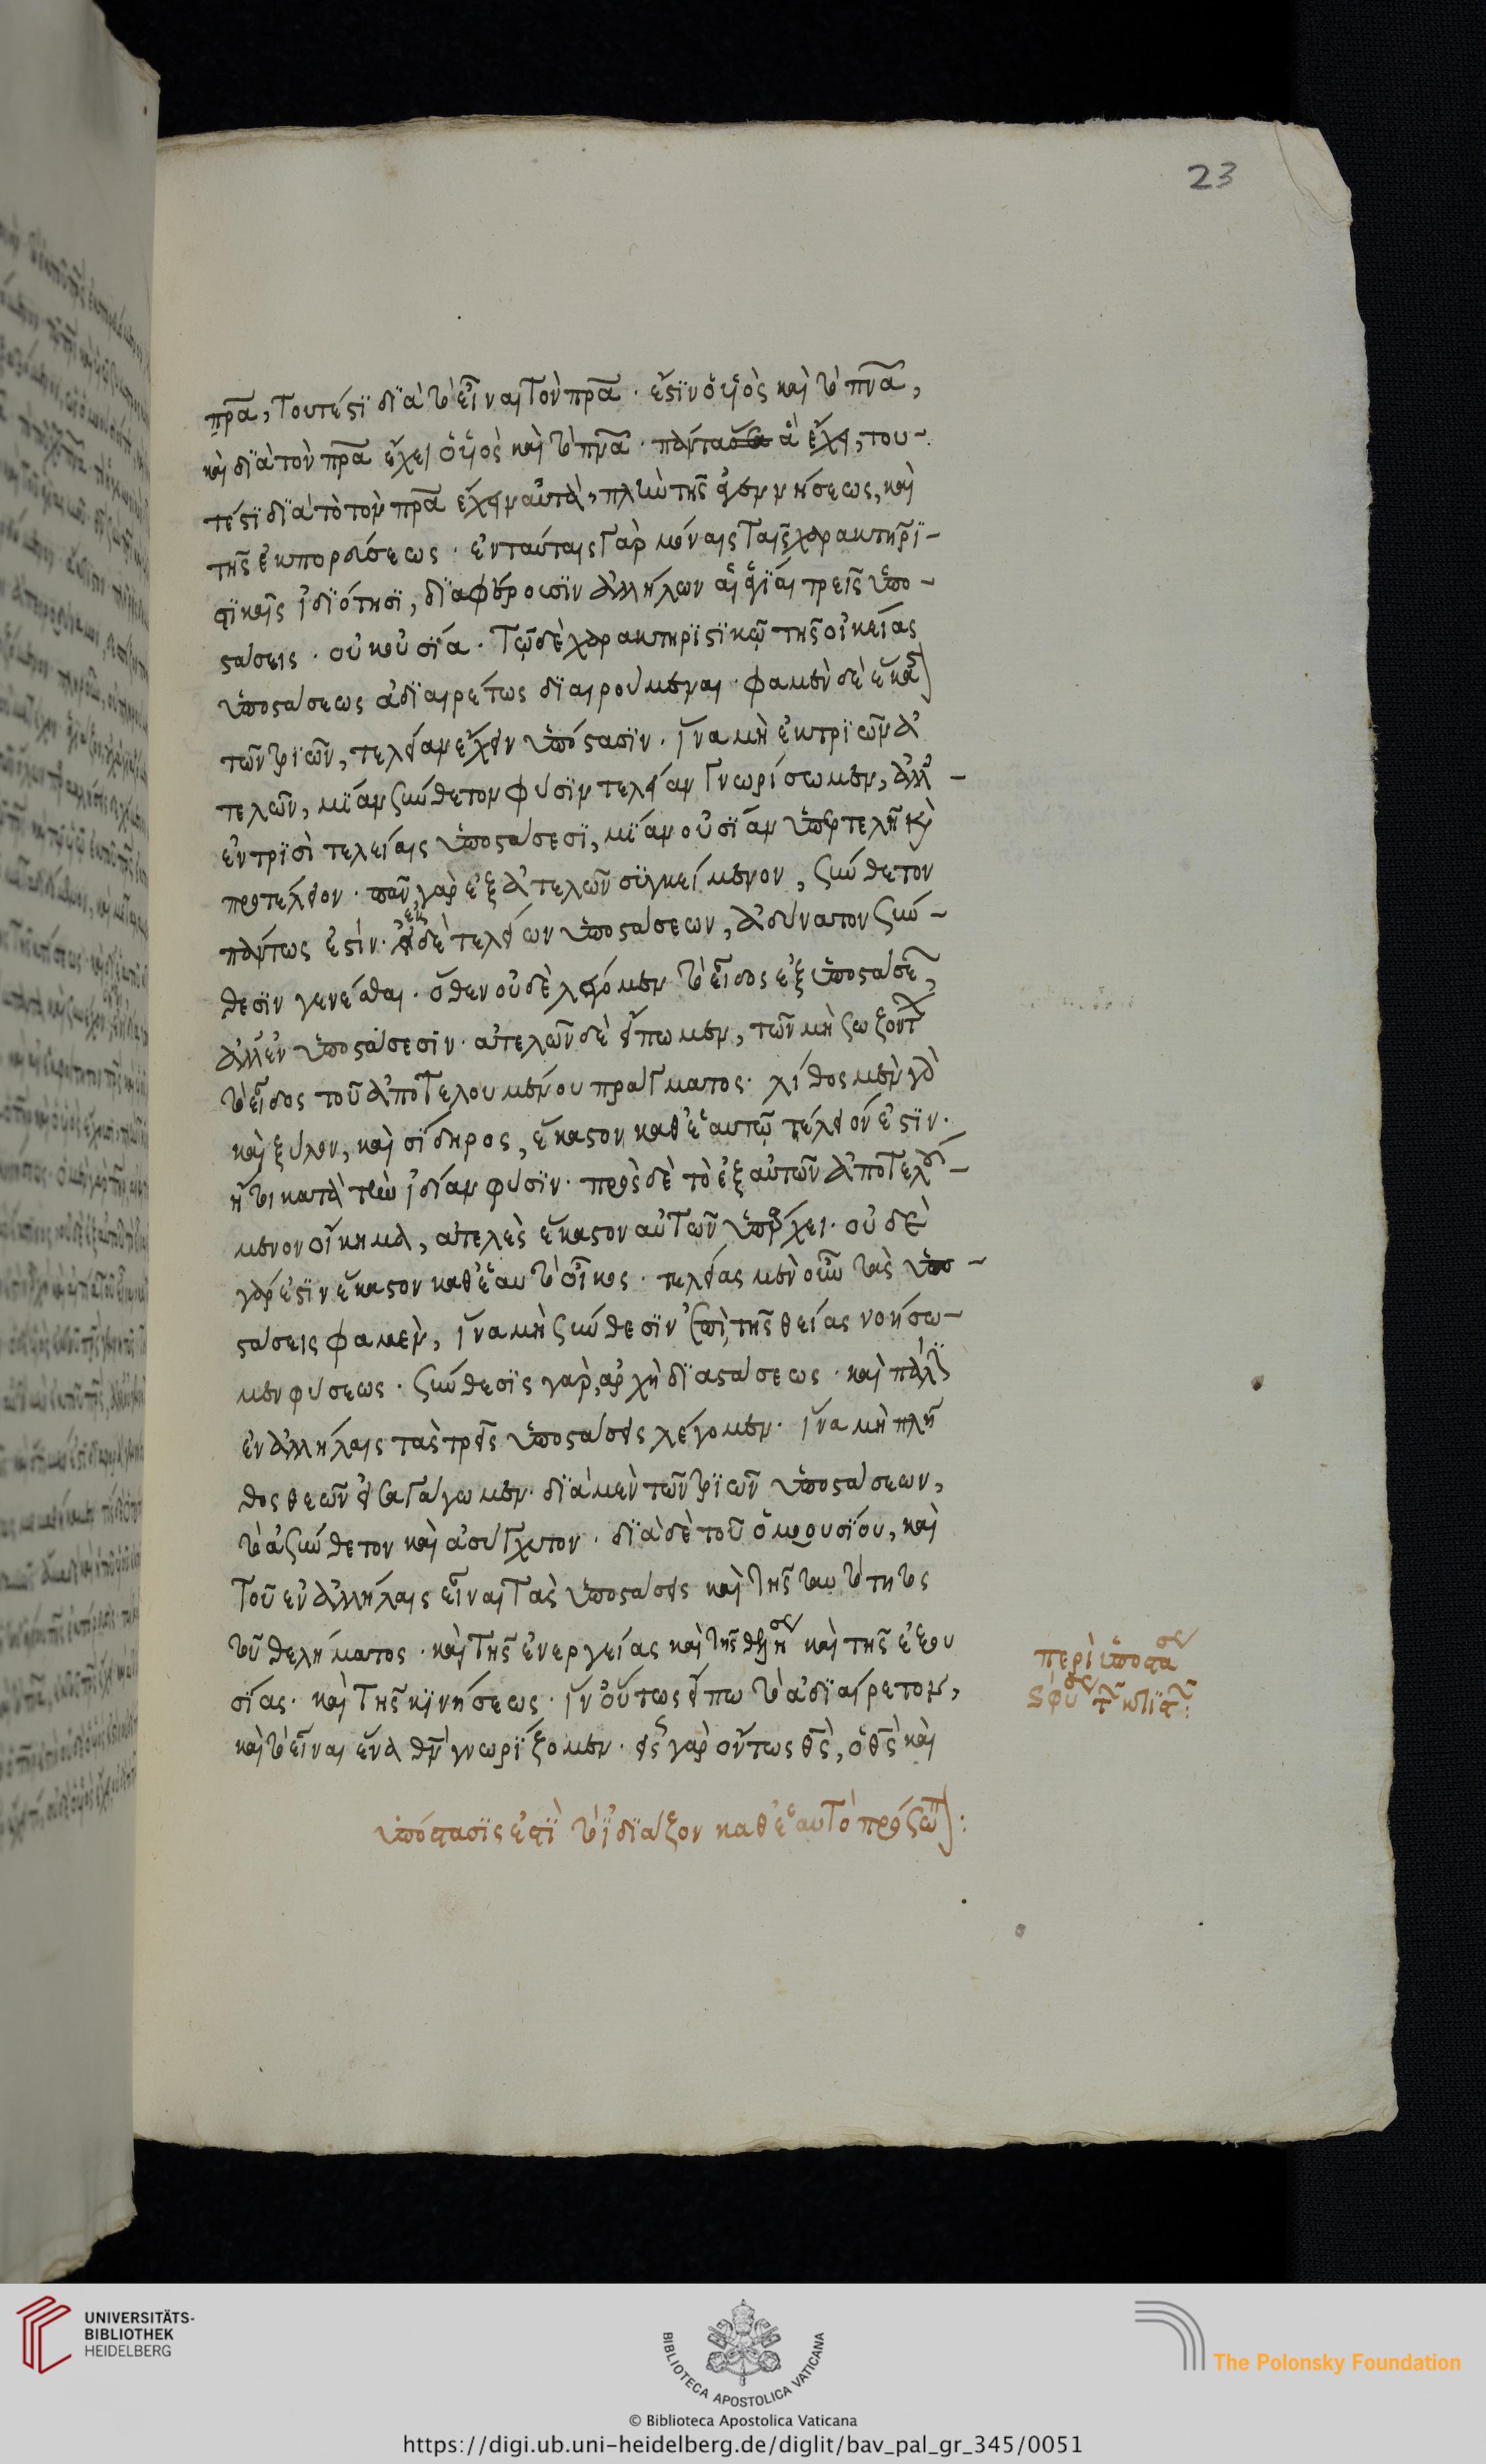 23
πρα, τουτέστι διὰ τὸ εἶναι τὸν πρα. ἔστιν ὁ υἱὸς καὶ τὸ πνα,
καὶ διὰ τὸν πρα ἔχει ὁ υἱὸς καὶ τὸ πνα. πάντα ἃ ἔχει, του-
τέστι διὰ τὸ τὸν πρα ἔχειν αὐτά, πλὴν τῆς ἀγεννησίας, καὶ
τῆς ἐκπορεύσεως. ἐν ταύταις γὰρ μόναις ταῖς χαρακτηρι-
στικαῖς ἰδιότησι, διαφέρουσιν ἀλλήλων αἱ ἅγιαι τρεῖς ὑπο-
στάσεις. οὐκ οὐσία. τῷ δὲ χαρακτηριστικῷ τῆς οἰκείας
ὑποστάσεως ἀδιαιρέτως διαιρούμεναι. φαμὲν δὲ ἕκαστ
τῶν τριῶν, τελείαν ἔχειν ὑπόστασιν. ἵνα μὴ ἐκ τριῶν ἀ
τελῶν, μίαν σύνθετον φύσιν τελείαν γνωρίσωμεν, ἀλλ -
ἐν τρισὶ τελείαις ὑποστάσεσι, μίαν οὐσίαν ὑπερτελῆ καὶ
προτέλειον. πᾶν γὰρ ἐξ ἀτελῶν συγκείμενον, σύνθετον
πάντως ἐστίν. ἐκ δὲ τελείων ὑποστάσεων, ἀδύνατον σύν-
θεσιν γενέσθαι. ὅθεν οὐδὲ λέγομεν τὸ εἶδος ἐξ ὑποστάσε,
ἀλλ' ἐν ὑποστάσεσιν. ἀτελῶν δὲ εἴπωμεν, τῶν μὴ σωζοντ
τὸ εἶδος τοῦ ἀποτελουμένου πράγματος. λίθος μὲν γὰρ
καὶ ξύλον, καὶ σίδηρος, ἕκαστον καθ' ἑαυτῷ τέλειόν ἐστιν.
ἤτοι κατὰ τὴν ἰδίαν φύσιν. πρὸς δὲ τὸ ἐξ αὐτῶν ἀποτελού-
μενον οἴκημα, ἀτελὲς ἕκαστον αὐτῶν ὑπάρχει. οὐδὲ
γάρ ἐστιν ἕκαστον καθ' ἑαυτὸ οἶκος. τελείας μὲν οὖν τὰς ὑπο-
στάσεις φαμὲν, ἵνα μὴ σύνθεσιν ἐπὶ τῆς θείας νοήσω-
μεν φύσεως. σύνθεσις γὰρ, ἀρχὴ διαστάσεως. καὶ πάλιν
ἐν ἀλλήλαις τὰς τρεῖς ὑποστάσεις λέγομεν. ἵνα μὴ πλῆ
θος θεῶν εἰσαγάγωμεν. διὰ μὲν τῶν τριῶν ὑποστάσεων,
τὸ ἀσύνθετον καὶ ἀσύγχυτον. διὰ δὲ τοῦ ὁμοουσίου, καὶ
τοῦ ἐν ἀλλήλαις εἶναι τὰς ὑποστάσεις καὶ τῆς ταυτότητος
τοῦ θελήματος. καὶ τῆς ἐνεργείας καὶ τῆς καὶ τῆς ἐξου
σίας. καὶ τῆς κινήσεως. ἵν' οὕτως εἴπω τὸ ἀδιαίρετον,
καὶ τὸ εἶναι ἕνα θν γνωρίζομεν. εἷς γὰρ ὄντως θς, ὁ θς καὶ
ὑπόστασις ἐστὶ τὸ ἰδιάζον καθ' ἑαυτὸ πρόσωπ:
περὶ ὑποστα
UNIVERSITÄTS-
BIBLIOTHEK
HEIDELBERG
BIBLIOTECA APOSTOLICA VATICANA
The Polonsky Foundation
© Biblioteca Apostolica Vaticana
https://digi.ub.uni-heidelberg.de/diglit/bav_pal_gr_345/0051